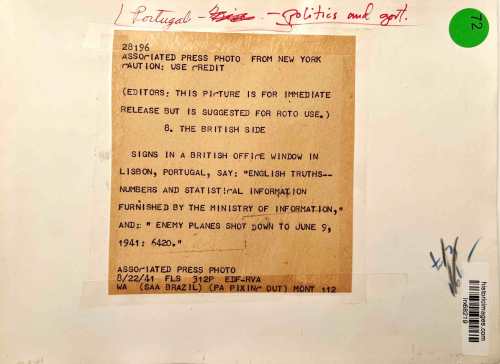 Portugal - - politics and govt.
72
28196
ASSOCIATED PRESS PHOTO FROM NEW YORK
CAUTION: USE CREDIT
(EDITORS: THIS PICTURE IS FOR IMMEDIATE
RELEASE BUT IS SUGGESTED FOR ROTO USE.)
8. THE BRITISH SIDE
SIGNS IN A BRITISH OFFICE WINDOW IN
LISBON, PORTUGAL, SAY: "ENGLISH TRUTHS--
NUMBERS AND STATISTICAL INFORMATION
FURNISHED BY THE MINISTRY OF INFORMATION,"
AND: " ENEMY PLANES SHOT DOWN TO JUNE 9,
1941: 6420."
ASSOCIATED PRESS PHOTO
8/22/41 FLS 312P EDF-RVA
WA (SAA BRAZIL) (PA PIXING OUT) MONT 112
historicimages.com